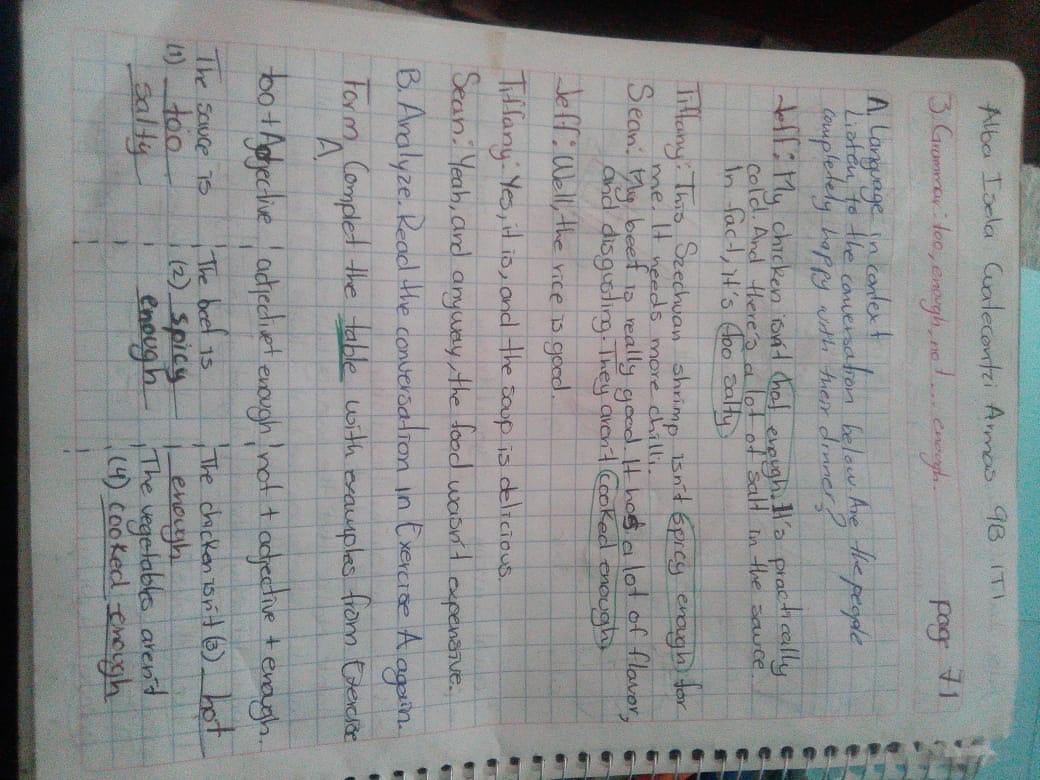 Alba Isela Cuatecontzi Armas 9B ITI
3. Grammar: too, enough, not... enough. page 71
A. Language in context
Listen to the conversation below. Are the people
completely happy with their dinner?
Jeff: My chicken isn't hot enough. It's practically
cold. And there's a lot of salt in the sauce.
In fact, it's too salty
Tiffany: This Szechuan shrimp isn't spicy enough for
me. It needs more chilli.
Sean: My beef is really good. It has a lot of flavor,
and disgusting. They aren't cooked enough
Jeff: Well, the rice is good.
Tiffany: Yes, it is, and the soup is delicious.
Sean: Yeah, and anyway, the food wasn't expensive.
B. Analyze. Read the conversation in Exercise A again.
Form. Complet the table with examples from Exercise
A.
too + Adjective adjective + enough not + adjective + enough.
The sauce is The beef is The chicken isn't (3) hot
(1) too (2) spicy enough
salty enough The vegetables aren't
(4) cooked enough